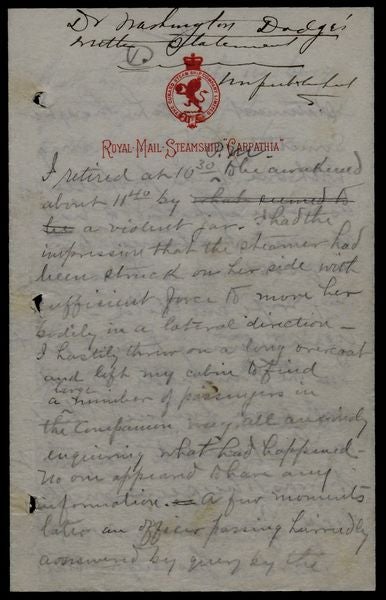 Dr Washington Dodge's
written Statement
1.
Unpublished
THE CUNARD STEAM SHIP COMPANY LIMITED
ROYAL-MAIL-STEAMSHIP "CARPATHIA"
P.M.
I retired at 10 30 to be awakened
about 11 40 by what seemed to
be a violent jar. I had the
impression that the steamer had
been struck on her side with
sufficient force to move her
bodily in a lateral direction —
I hastily threw on a long overcoat
and left my cabin to find
large
a number of passengers in
the Companion way, all anxiously
enquiring what had happened —
No one appeared to have any
information. — A few moments
later an officer passing hurriedly
answered by query by the